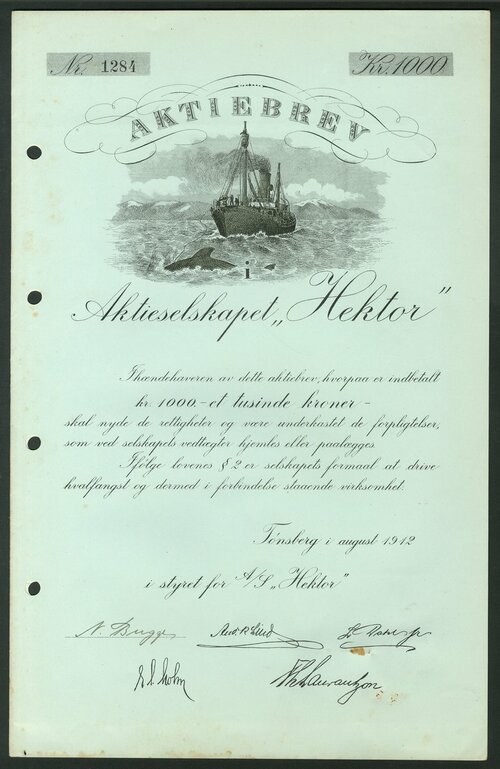 Nr. 1284
Kr. 1000
AKTIEBREV
i
Aktieselskapet „Hektor"
Ihændehaveren av dette aktiebrev, hvorpaa er indbetalt
kr. 1000.- et tusinde kroner -
skal nyde de rettigheter og være underkastet de forpligtelser,
som ved selskapets vedtægter hjemles eller paalægges.
Ifölge lovenes § 2 er selskapets formaal at drive
hvalfangst og dermed i forbindelse staaende virksomhet.
Tönsberg i august 1912
i styret for A/S „Hektor"
N. Bugge